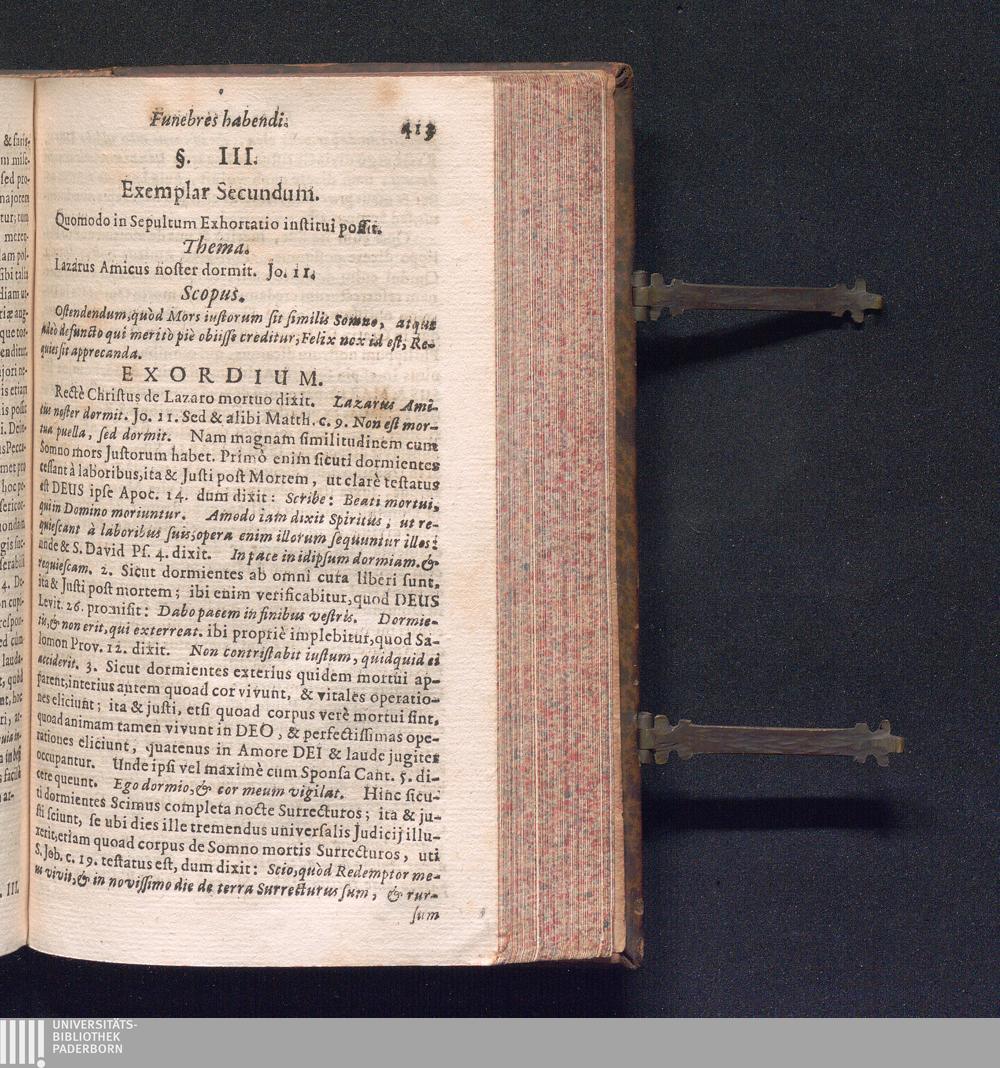 Funebres habendi. 413
§. III.
Exemplar Secundum.
Quomodo in Sepultum Exhortatio institui possit.
Thema.
Lazarus Amicus noster dormit. Jo. 11.
Scopus.
Ostendendum, quòd Mors iustorum sit similis Somno, atque
adeò defuncto qui meritò piè obiisse creditur, Felix nox id est, Re-
quies sit apprecanda.
EXORDIUM.
Rectè Christus de Lazaro mortuo dixit. Lazarus Ami-
cus noster dormit. Jo. 11. Sed & alibi Matth. c. 9. Non est mor-
tua puella, sed dormit. Nam magnam similitudinem cum
Somno mors Justorum habet. Primò enim sicuti dormientes
cessant à laboribus, ita & Justi post Mortem, ut clarè testatus
est DEUS ipse Apoc. 14. dum dixit: Scribe: Beati mortui,
qui in Domino moriuntur. Amodo iam dixit Spiritus, ut re-
quiescant à laboribus suis; opera enim illorum sequuntur illos:
unde & S. David Ps. 4. dixit. In pace in idipsum dormiam. &
requiescam. 2. Sicut dormientes ab omni cura liberi sunt,
ita & Justi post mortem; ibi enim verificabitur, quod DEUS
Levit. 26. promisit: Dabo pacem in finibus vestris. Dormie-
tis, & non erit, qui exterreat. ibi propriè implebitur, quod Sa-
lomon Prov. 12. dixit. Non contristabit iustum, quidquid ei
acciderit. 3. Sicut dormientes exterius quidem mortui ap-
parent, interius autem quoad cor vivunt, & vitales operatio-
nes eliciunt; ita & justi, etsi quoad corpus verè mortui sint,
quoad animam tamen vivunt in DEO, & perfectissimas ope-
rationes eliciunt, quatenus in Amore DEI & laude jugiter
occupantur. Unde ipsi vel maximè cum Sponsa Cant. 5. di-
cere queunt. Ego dormio, & cor meum vigilat. Hinc sicu-
ti dormientes Scimus completa nocte Surrecturos; ita & ju-
sti sciunt, se ubi dies ille tremendus universalis Judicij illu-
xerit, etiam quoad corpus de Somno mortis Surrecturos, uti
S. Job. c. 19. testatus est, dum dixit: Scio, quòd Redemptor me-
us vivit, & in novissimo die de terra Surrecturus sum, & rur-
sum
UNIVERSITÄTS-
BIBLIOTHEK
PADERBORN